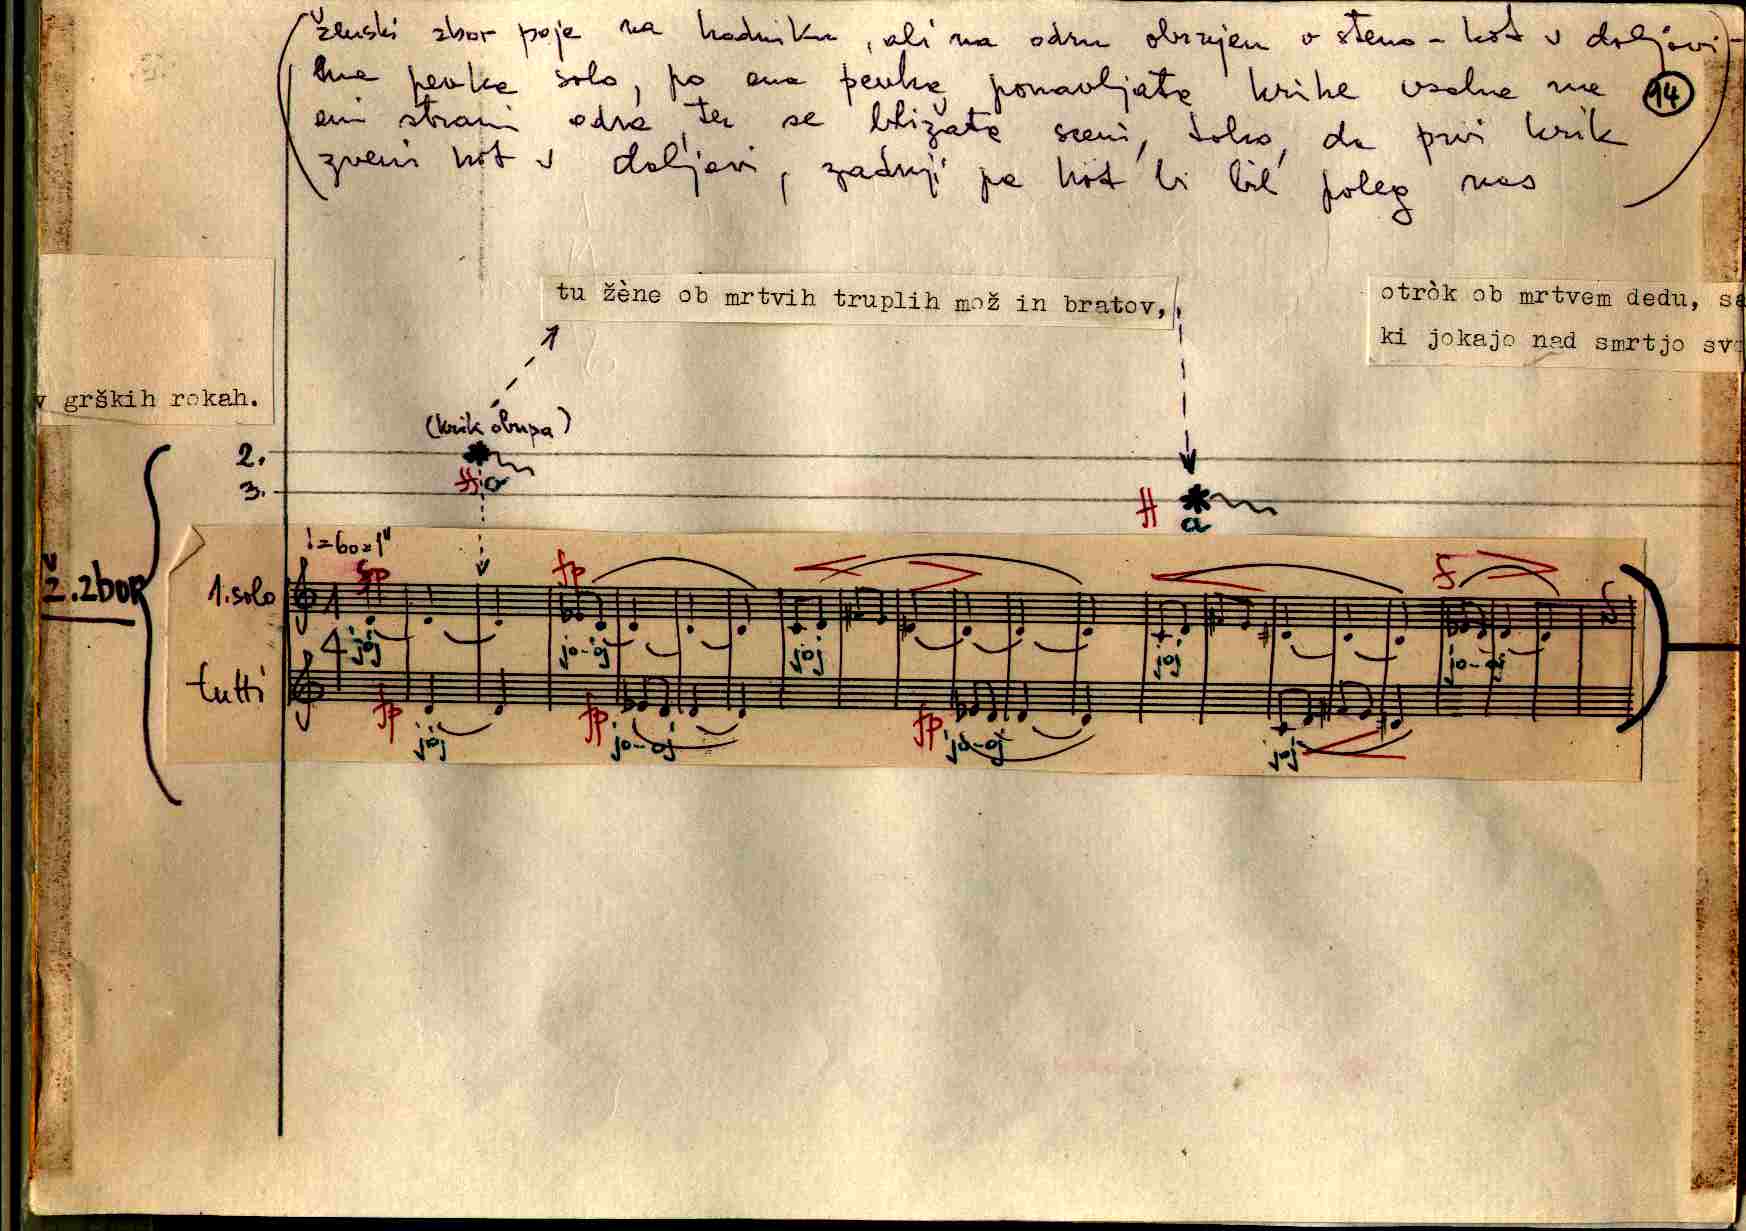 (ženski zbor poje na hodniku, ali na odru obrnjen v steno - kot v daljavi -
ena pevka solo, po ena pevka ponavljata krike vsaka na
eni strani odra, ter se bližata sceni, tako, da prvi krik
zveni kot v daljavi, zadnji pa kot bi bil poleg nas)
14
tu žène ob mrtvih truplih mož in bratov,
otròk ob mrtvem dedu, sa
ki jokajo nad smrtjo svo
v grških rokah.
(krik obupa)
2.
ff a
3.
ff a
♩=60=1"
Ž. zbor
1. solo
fp fp f
1 4
joj jo-oj joj joj jo-oj
tutti
fp fp fp
joj jo-oj jo-oj joj